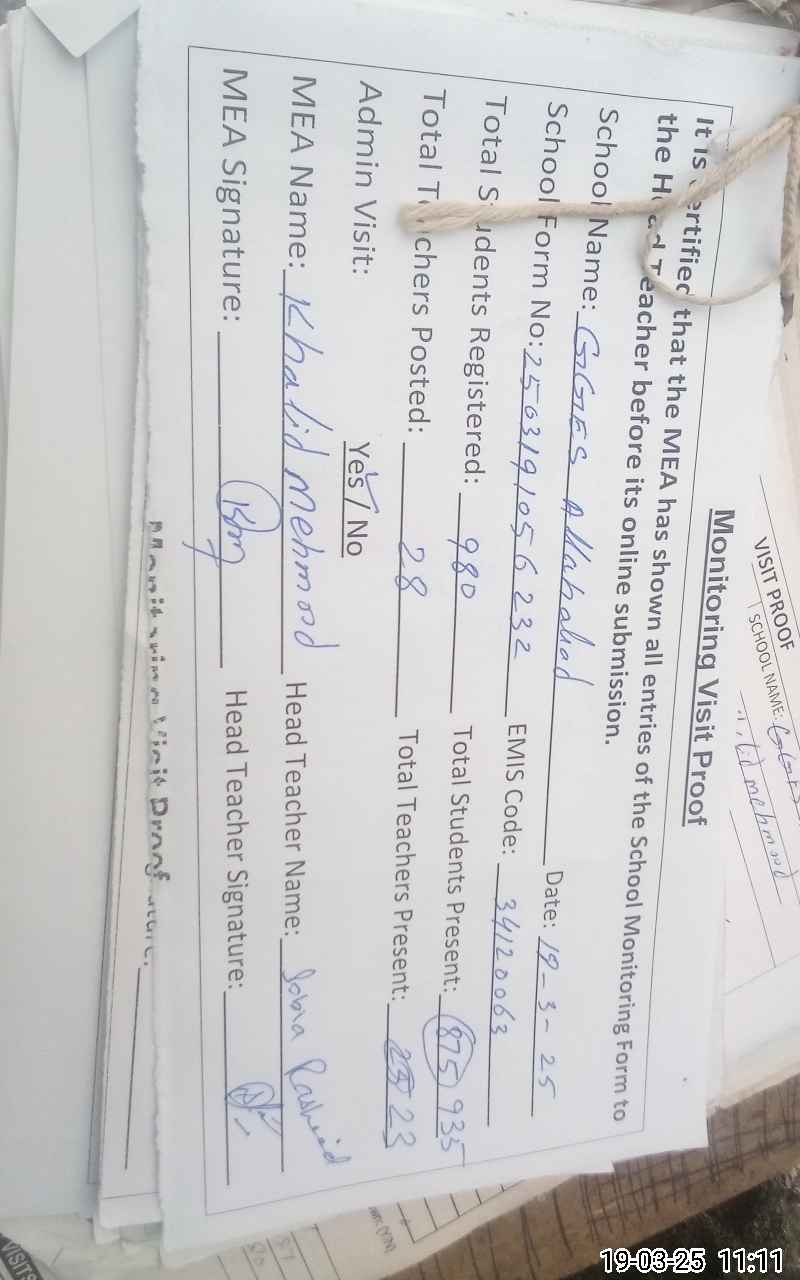 Monitoring Visit Proof
It is certified that the MEA has shown all entries of the School Monitoring Form to
the Head Teacher before its online submission.
School Name: GGES Allahabad Date: 19-3-25
School Form No: 2503191056232 EMIS Code: 34120063
Total Students Registered: 980 Total Students Present: 875 935
Total Teachers Posted: 28 Total Teachers Present: 23
Admin Visit: Yes / No
MEA Name: Khalid Mehmood Head Teacher Name: Sobia Rasheed
MEA Signature: Head Teacher Signature:
VISIT PROOF
SCHOOL NAME: GGES
Mehmood
Monitoring Visit Proof
19-03-25 11:11